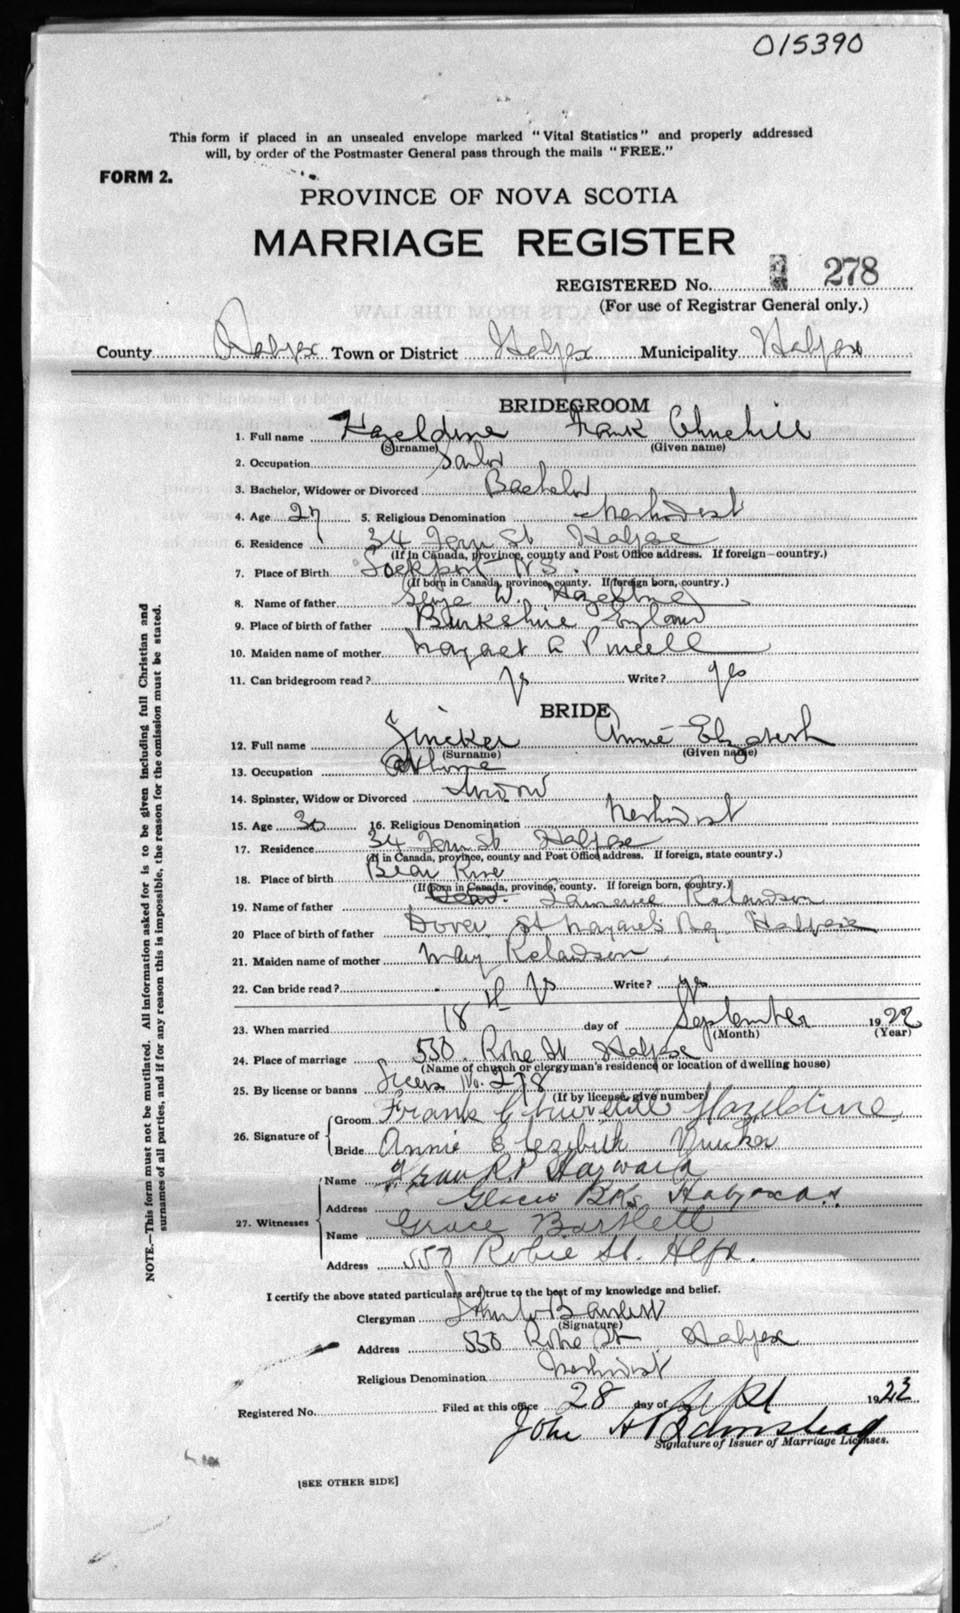 015390
This form if placed in an unsealed envelope marked "Vital Statistics" and properly addressed
will, by order of the Postmaster General pass through the mails "FREE."
FORM 2.
PROVINCE OF NOVA SCOTIA
MARRIAGE REGISTER
REGISTERED No. 278
(For use of Registrar General only.)
County Halifax Town or District Halifax Municipality Halifax
BRIDEGROOM
1. Full name Hazeldine Frank Churchill
(Surname) (Given name)
2. Occupation Sailor
3. Bachelor, Widower or Divorced Bachelor
4. Age 27 5. Religious Denomination Methodist
6. Residence 34 St Halifax
(If in Canada, province, county and Post Office address. If foreign—country.)
7. Place of Birth Lockport N.S.
(If born in Canada, province, county. If foreign born, country.)
8. Name of father W. Hazeldine
9. Place of birth of father England
10. Maiden name of mother Margaret A Purcell
11. Can bridegroom read? Yes Write? Yes
BRIDE
12. Full name Annie Elizabeth
(Surname) (Given name)
13. Occupation At home
14. Spinster, Widow or Divorced Widow
15. Age 30 16. Religious Denomination Methodist
17. Residence 34 St Halifax
(If in Canada, province, county and Post Office address. If foreign, state country.)
18. Place of birth Bear River
(If born in Canada, province, county. If foreign born, country.)
19. Name of father Lawrence
20 Place of birth of father Dover, St Margaret's Bay Halifax
21. Maiden name of mother Mary
22. Can bride read? Yes Write? Yes
23. When married 18th day of September 1922
(Month) (Year)
24. Place of marriage 550 Robie St Halifax
(Name of church or clergyman's residence or location of dwelling house)
25. By license or banns License No. 278
(If by license, give number)
26. Signature of Groom Frank Churchill Hazeldine
Bride Annie Elizabeth
27. Witnesses Name Frank P Hayward
Address Glacis Bks Halifax
Name Grace Bartlett
Address 550 Robie St. Hlfx.
I certify the above stated particulars are true to the best of my knowledge and belief.
Clergyman Bartlett
(Signature)
Address 550 Robie St Halifax
Religious Denomination Methodist
Registered No. Filed at this office 28 day of Sept 1922
John H
Signature of Issuer of Marriage Licenses.
[SEE OTHER SIDE]
NOTE.—This form must not be mutilated. All information asked for is to be given including full Christian and
surnames of all parties, and if for any reason this is impossible, the reason for the omission must be stated.